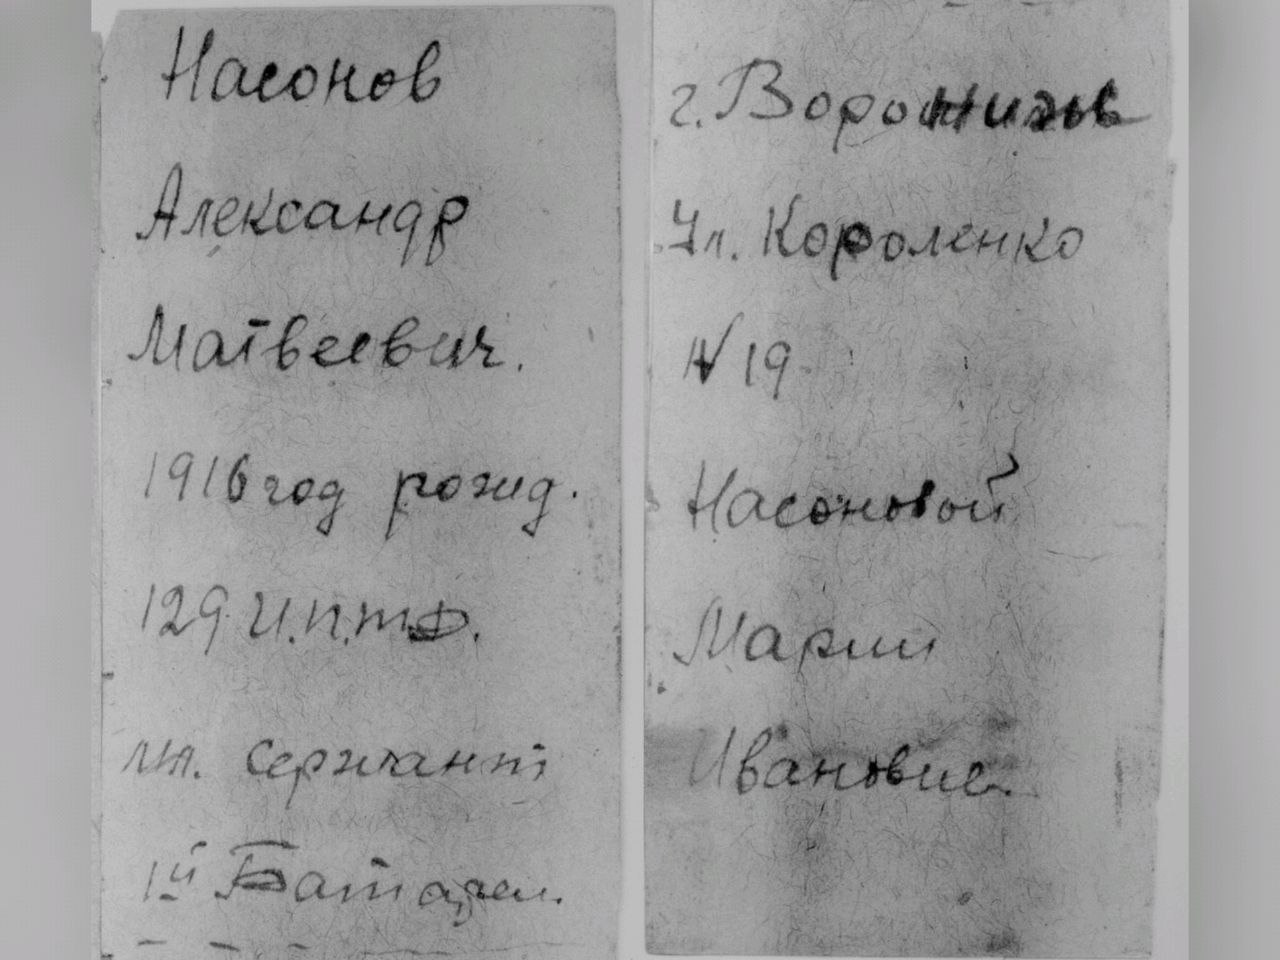 Насонов
Александр
Матвеевич.
1916 год рожд.
129 И.П.т.Д.
мл. сержант
1й Батареи.
г. Ворошилов
Ул. Короленко
N 19
Насоновой
Марии
Ивановне.